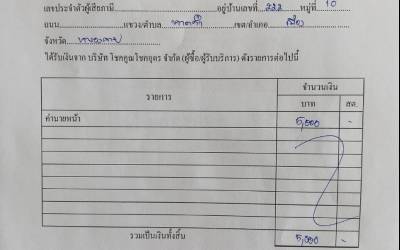 เลขประจำตัวผู้เสียภาษี อยู่บ้านเลขที่ 222 หมู่ที่ 10
ถนน แขวง/ตำบล เขต/อำเภอ เมือง
จังหวัด
ได้รับเงินจาก บริษัท โชคคูณโชคยุคร จำกัด (ผู้ซื้อ/ผู้รับบริการ) ดังรายการต่อไปนี้
รายการ จำนวนเงิน
บาท สต.
ค่านายหน้า 5,000 -
รวมเป็นเงินทั้งสิ้น 5,000 -